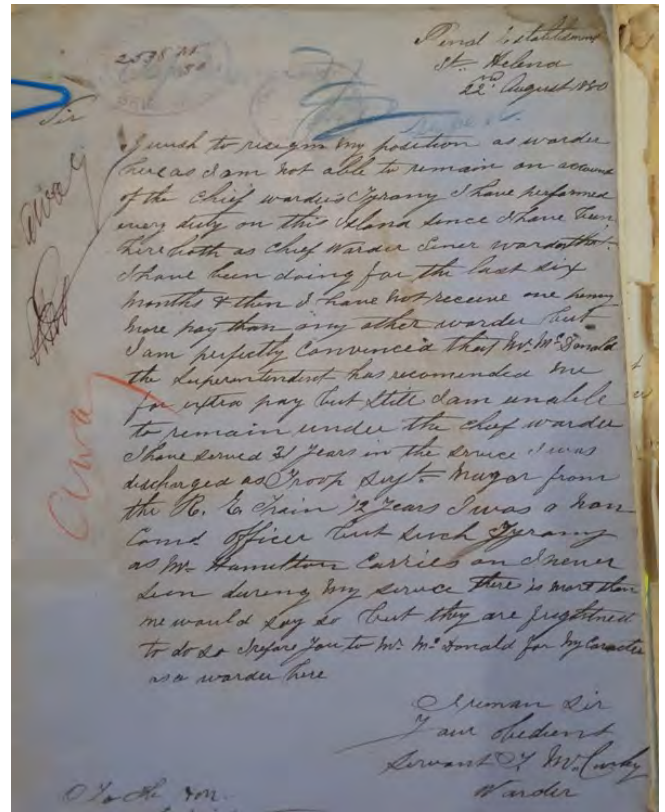 Penal Establishment
St. Helena
22nd August 1880
2535 M
80
Sir
I wish to resigm my position as warder
here as I am not able to remain on account
of the chief warders Tyrany I have performed
every duty on this Island since I have been
here both as Chief Warder Siner warder that
I have been doing for the last six
months & then I have not receive one penny
more pay than any other warder but
I am perfectly convinced that Mr. McDonald
the Superintendent has recomended me
for extra pay but still I am unable
to remain under the chief warder
I have served 21 Years in the service I was
discharged as Troop Sergt. Magar from
the R. E. Train 12 Years I was a non
Comd Officer but such Tyrany
as Mr. Hamilton Carries on I never
seen during my service there is more than
me would say so but they are frightned
to do so I refare You to Mr. McDonald for my Caracter
as a warder here
I reman Sir
Your obedient
Servant
Warder
To the Hon.
away
Awa